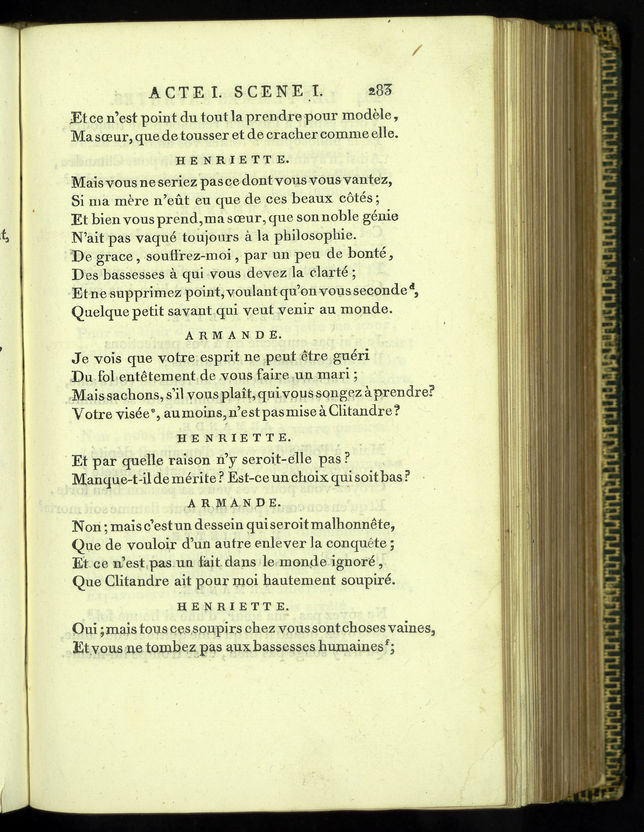 ACTE I. SCENE I. 283
Et ce n'est point du tout la prendre pour modèle,
Ma sœur, que de tousser et de cracher comme elle.
HENRIETTE.
Mais vous ne seriez pas ce dont vous vous vantez,
Si ma mère n'eût eu que de ces beaux côtés;
Et bien vous prend, ma sœur, que son noble génie
N'ait pas vaqué toujours à la philosophie.
De grace, souffrez-moi, par un peu de bonté,
Des bassesses à qui vous devez la clarté;
Et ne supprimez point, voulant qu'on vous seconde d,
Quelque petit savant qui veut venir au monde.
ARMANDE.
Je vois que votre esprit ne peut être guéri
Du fol entêtement de vous faire un mari;
Mais sachons, s'il vous plaît, qui vous songez à prendre?
Votre visée e, au moins, n'est pas mise à Clitandre?
HENRIETTE.
Et par quelle raison n'y seroit-elle pas?
Manque-t-il de mérite? Est-ce un choix qui soit bas?
ARMANDE.
Non; mais c'est un dessein qui seroit malhonnête,
Que de vouloir d'un autre enlever la conquête;
Et ce n'est pas un fait dans le monde ignoré,
Que Clitandre ait pour moi hautement soupiré.
HENRIETTE.
Oui; mais tous ces soupirs chez vous sont choses vaines,
Et vous ne tombez pas aux bassesses humaines f;